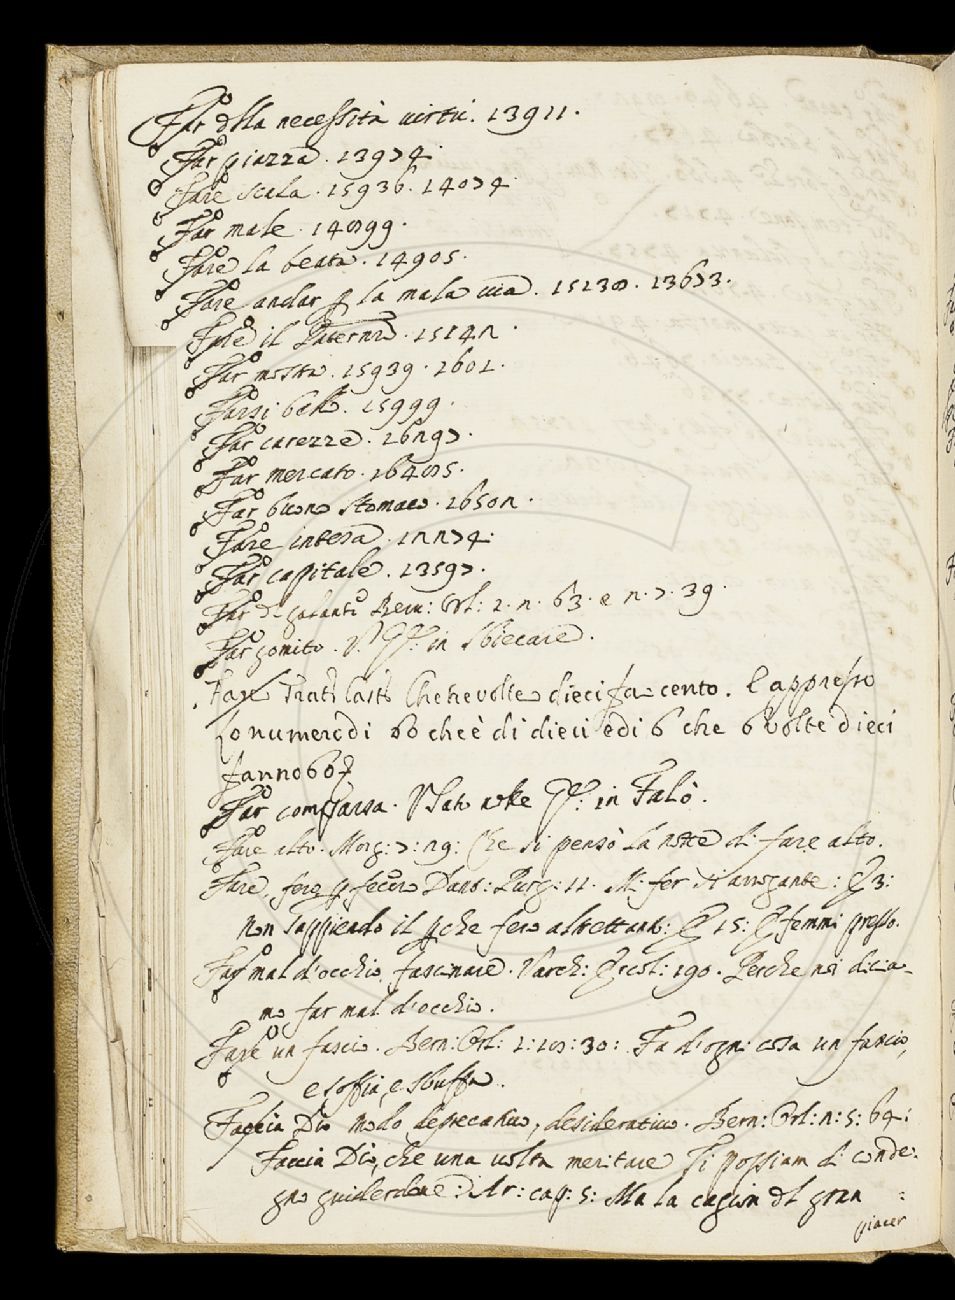 Far dlla necessità uirtù. 13911.
Far piazza. 139>4.
Fare scala. 15936. 140>4
Far male. 140399.
Fare la beata. 14905.
Fare andar p la mala uia. 15230. 136>3.
Fare il Paternro. 1514n.
Far mostra. 15939. 1601.
Farsi bello. 15999.
Far carezze. 16n9>.
Far mercato. 16405.
Far buono stomaco. 1650n.
Fare intesa. 1nn>4.
Far capitale. 1359>.
Far Bern: Orl: 2. n. 63. e n. >. 39.
Far gomito. V. in sbiecare.
Fare Tratti Chetrevolte dieci fa cento. E appresso
Lo numero di 60 che è di dieci edi 6 che 6 volte dieci
fanno 60
Far comparsa. in Falò.
Fare alto. Morg: >: n9: Che si pensò la notte di fare alto.
Fare, fero p fecero Dant: Purg: 11. Mi fer arrogante: 3:
non sappiendo il pche fero altrettant: 15: femmi presso.
Far mal d'occhio, fascinare. Varch: Ercol: 190. Perche noi dicia-
mo far mal d'occhio.
Fare un fascio. Bern: Orl: 1: 30: Fa d'ogni cosa un fascio,
e soffia, e sbuffa.
Faccia Dio modo deprecativo, desiderativo. Bern: Orl: n: 5: 64:
Faccia Dio, che una uolta meritare Ti possiam di conde-
gno guiderdone: Ar: cap: 5: Ma la cagion dl gran
piacer